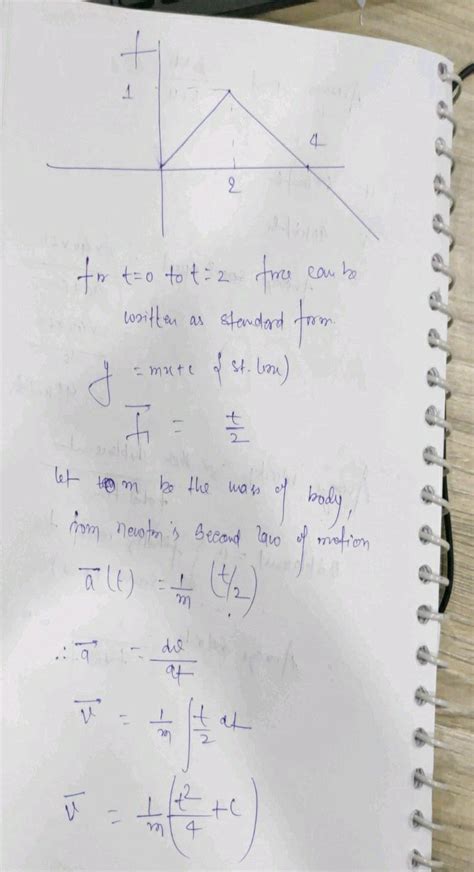 f
1
4
2
for t=0 to t=2 force can be
written as standard form
y = mx+c (st. line)
f₁ = t/2
let m be the mass of body,
from newton's second law of motion
a (t) = 1/m (t/2)
∴ a = dv/dt
v = 1/m ∫ t/2 dt
v = 1/m (t²/4 + c)